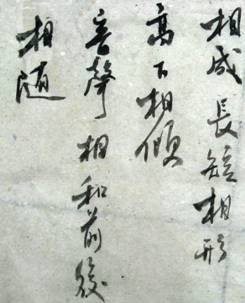 相成長短相形
高下相傾
音聲相和前後
相隨